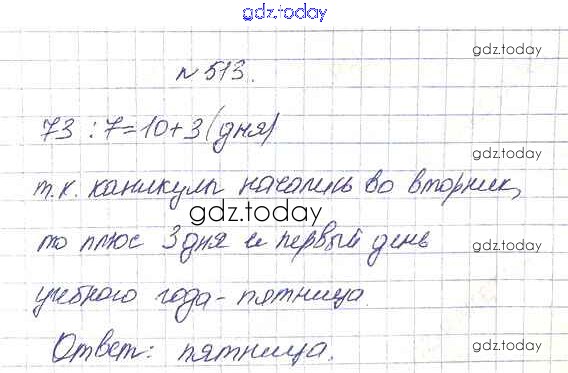 gdz.today
gdz.today
№ 513.
73 : 7 = 10 + 3 (дня)
gdz.today
т.к. каникулы начались во вторник,
gdz.today
то плюс 3 дня и первый день
gdz.today
учебного года - пятница.
Ответ: пятница.
gdz.today